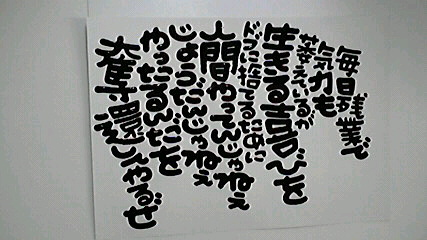 毎日残業で
気力も
萎えているが
生きる喜びを
ドブに捨てるために
人間やってんじゃねぇ
じょうだんじゃねぇ
やったるんだを
奪還えしゃるぜ